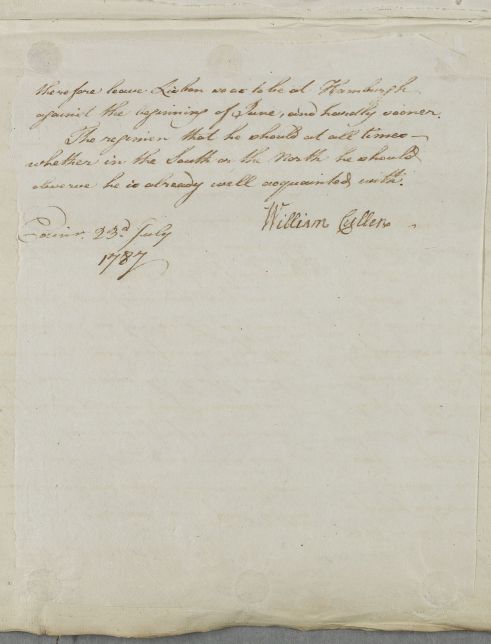 therefore leave Lisbon so as to be at Hamburgh
against the beginning of June, and hardly sooner.
The regimen that he should at all times
whether in the South or the North he should
observe he is already well acquainted with.
William Cullen
Edinr. 23d July
1787